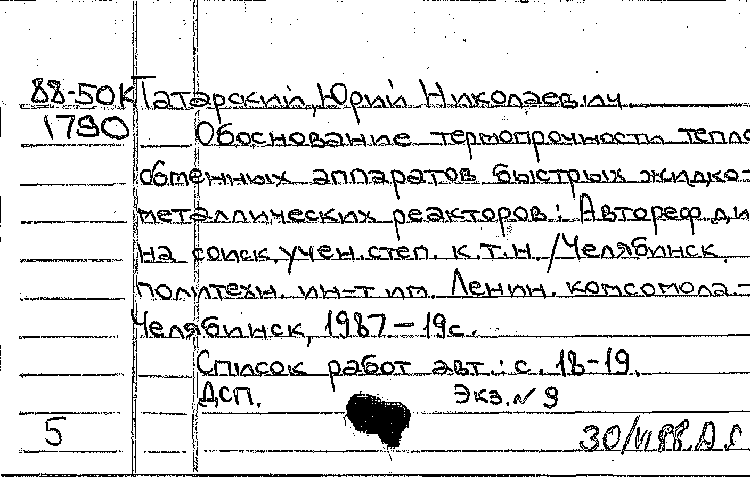 88-50К Татарский, Юрий Николаевич
1790 Обоснование термопрочности тепло
обменных аппаратов быстрых жидко-
металлических реакторов: Автореф. ди
на соиск. учен. степ. к.т.н. /Челябинск.
политехн. ин-т им. Ленин. комсомола.-
Челябинск, 1987 – 19с.
Список работ авт.: с. 18-19.
ДСП. Экз. № 9
5